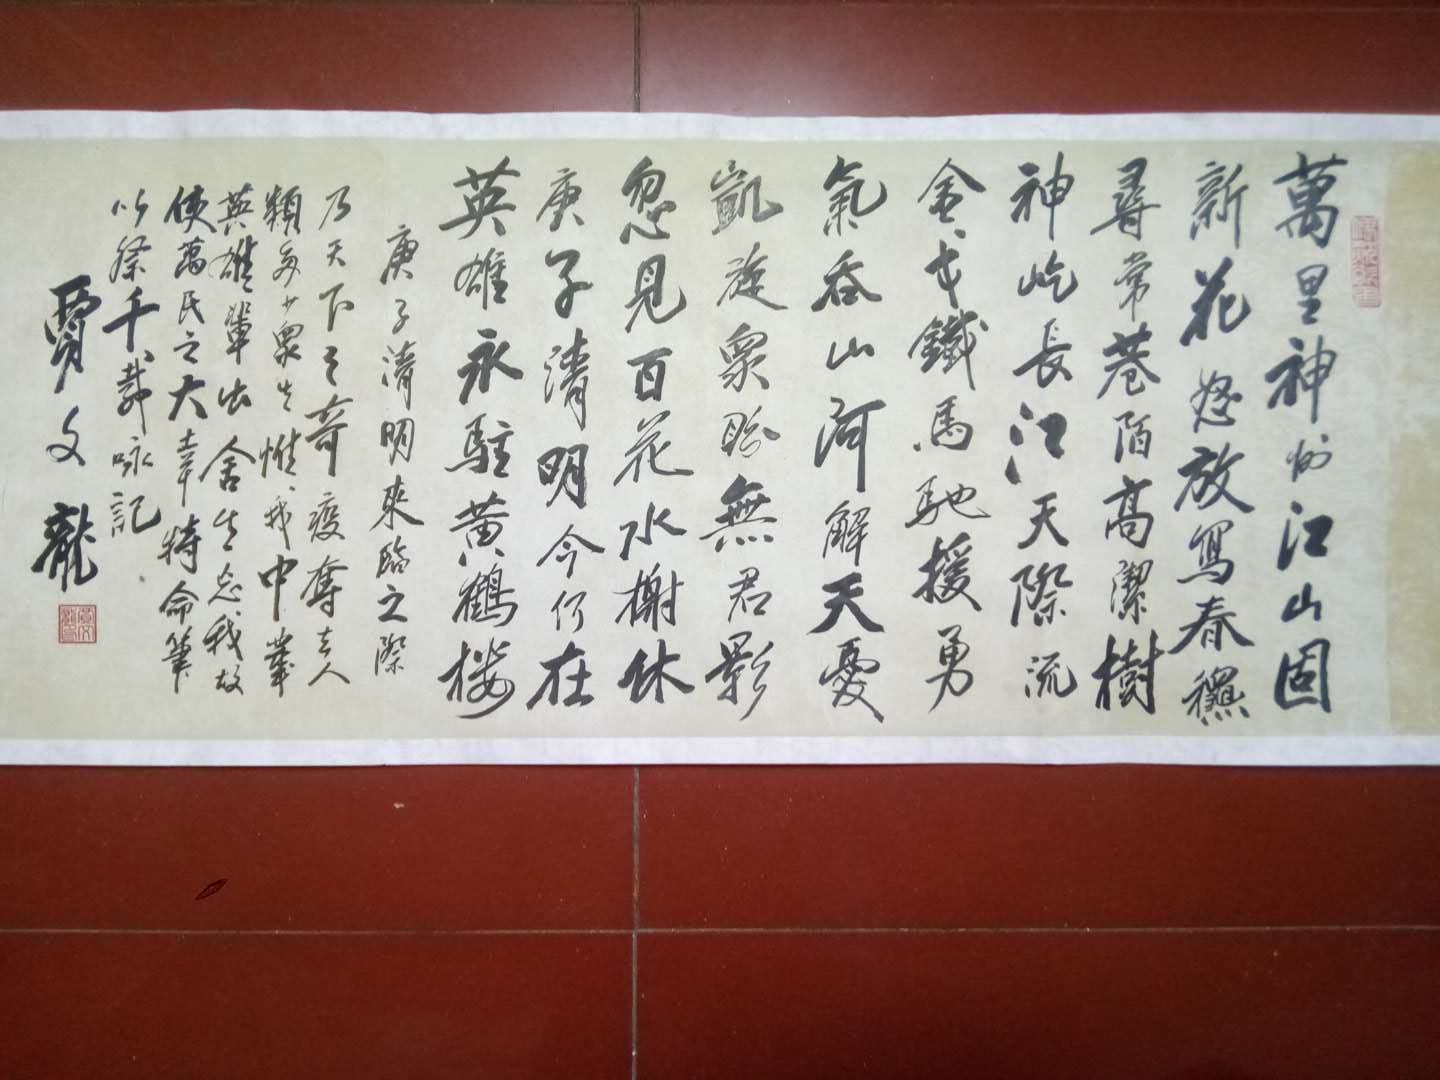 萬里神州江山固
新花怒放寫春穠
尋常巷陌高潔樹
神屹長江天際流
金戈鐵馬馳援勇
氣吞山河解天憂
凱旋衆盼無君影
忽見百花水榭休
庚子清明今何在
英雄永駐黄鶴楼
庚子清明來臨之際
乃天下之奇疫奪去人
類多少衆生惟我中華
英雄輩出舍生忘我故
使萬民之大幸特命筆
以祭千載咏記
賈文龍